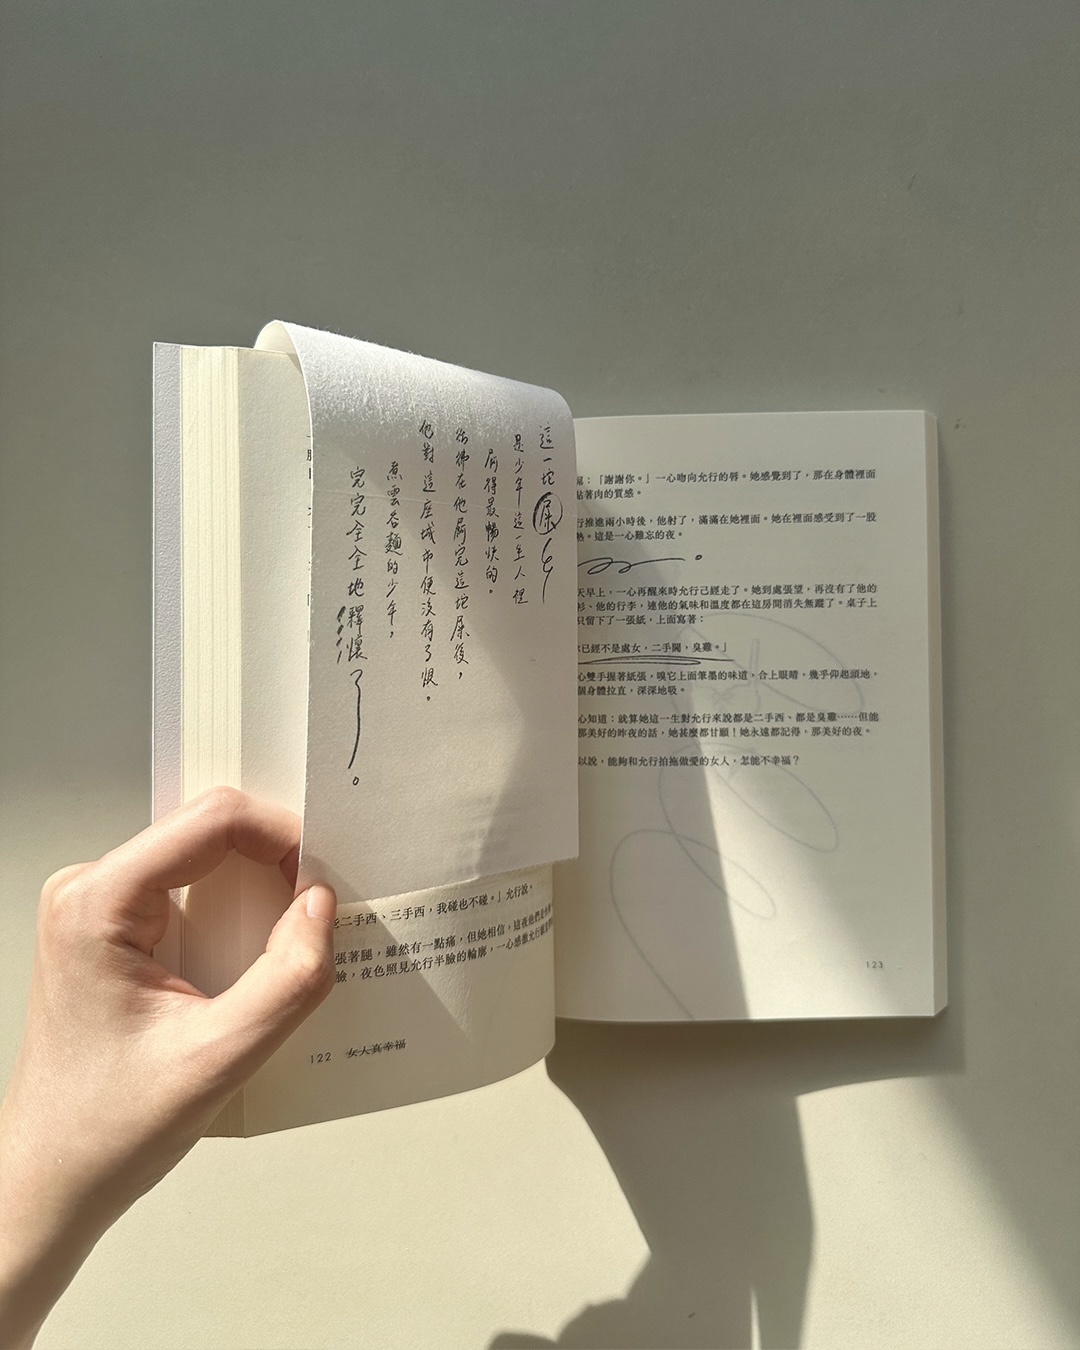 這一坨屎
是少年這一生人裡
屙得最暢快的。
彷彿在他屙完這坨屎後，
他對這座城市便沒有了恨。
煮雲吞麵的少年，
完完全全地釋懷了。
二手西、三手西，我碰也不碰。」允行說。
張著腿，雖然有一點痛，但她相信，這夜他們
臉，夜色照見允行半臉的輪廓，一心感激允行
122 女人真幸福
：「謝謝你。」一心吻向允行的唇。她感覺到了，那在身體裡面
貼著肉的質感。
行推進兩小時後，他射了，滿滿在她裡面。她在裡面感受到了一股
熱。這是一心難忘的夜。
天早上，一心再醒來時允行已經走了。她到處張望，再沒有了他的
衫、他的行李，連他的氣味和溫度都在這房間消失無蹤了。桌子上
只留下了一張紙，上面寫著：
已經不是處女，二手閪，臭雞。」
心雙手握著紙張，嗅它上面筆墨的味道，合上眼睛，幾乎仰起頭地，
個身體拉直，深深地吸。
心知道：就算她這一生對允行來說都是二手西、都是臭雞……但能
那美好的昨夜的話，她甚麼都甘願！她永遠都記得，那美好的夜。
以說，能夠和允行拍拖做愛的女人，怎能不幸福？
123